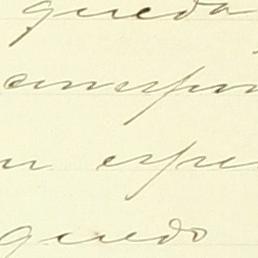 queda
correspon
n espe
quedo